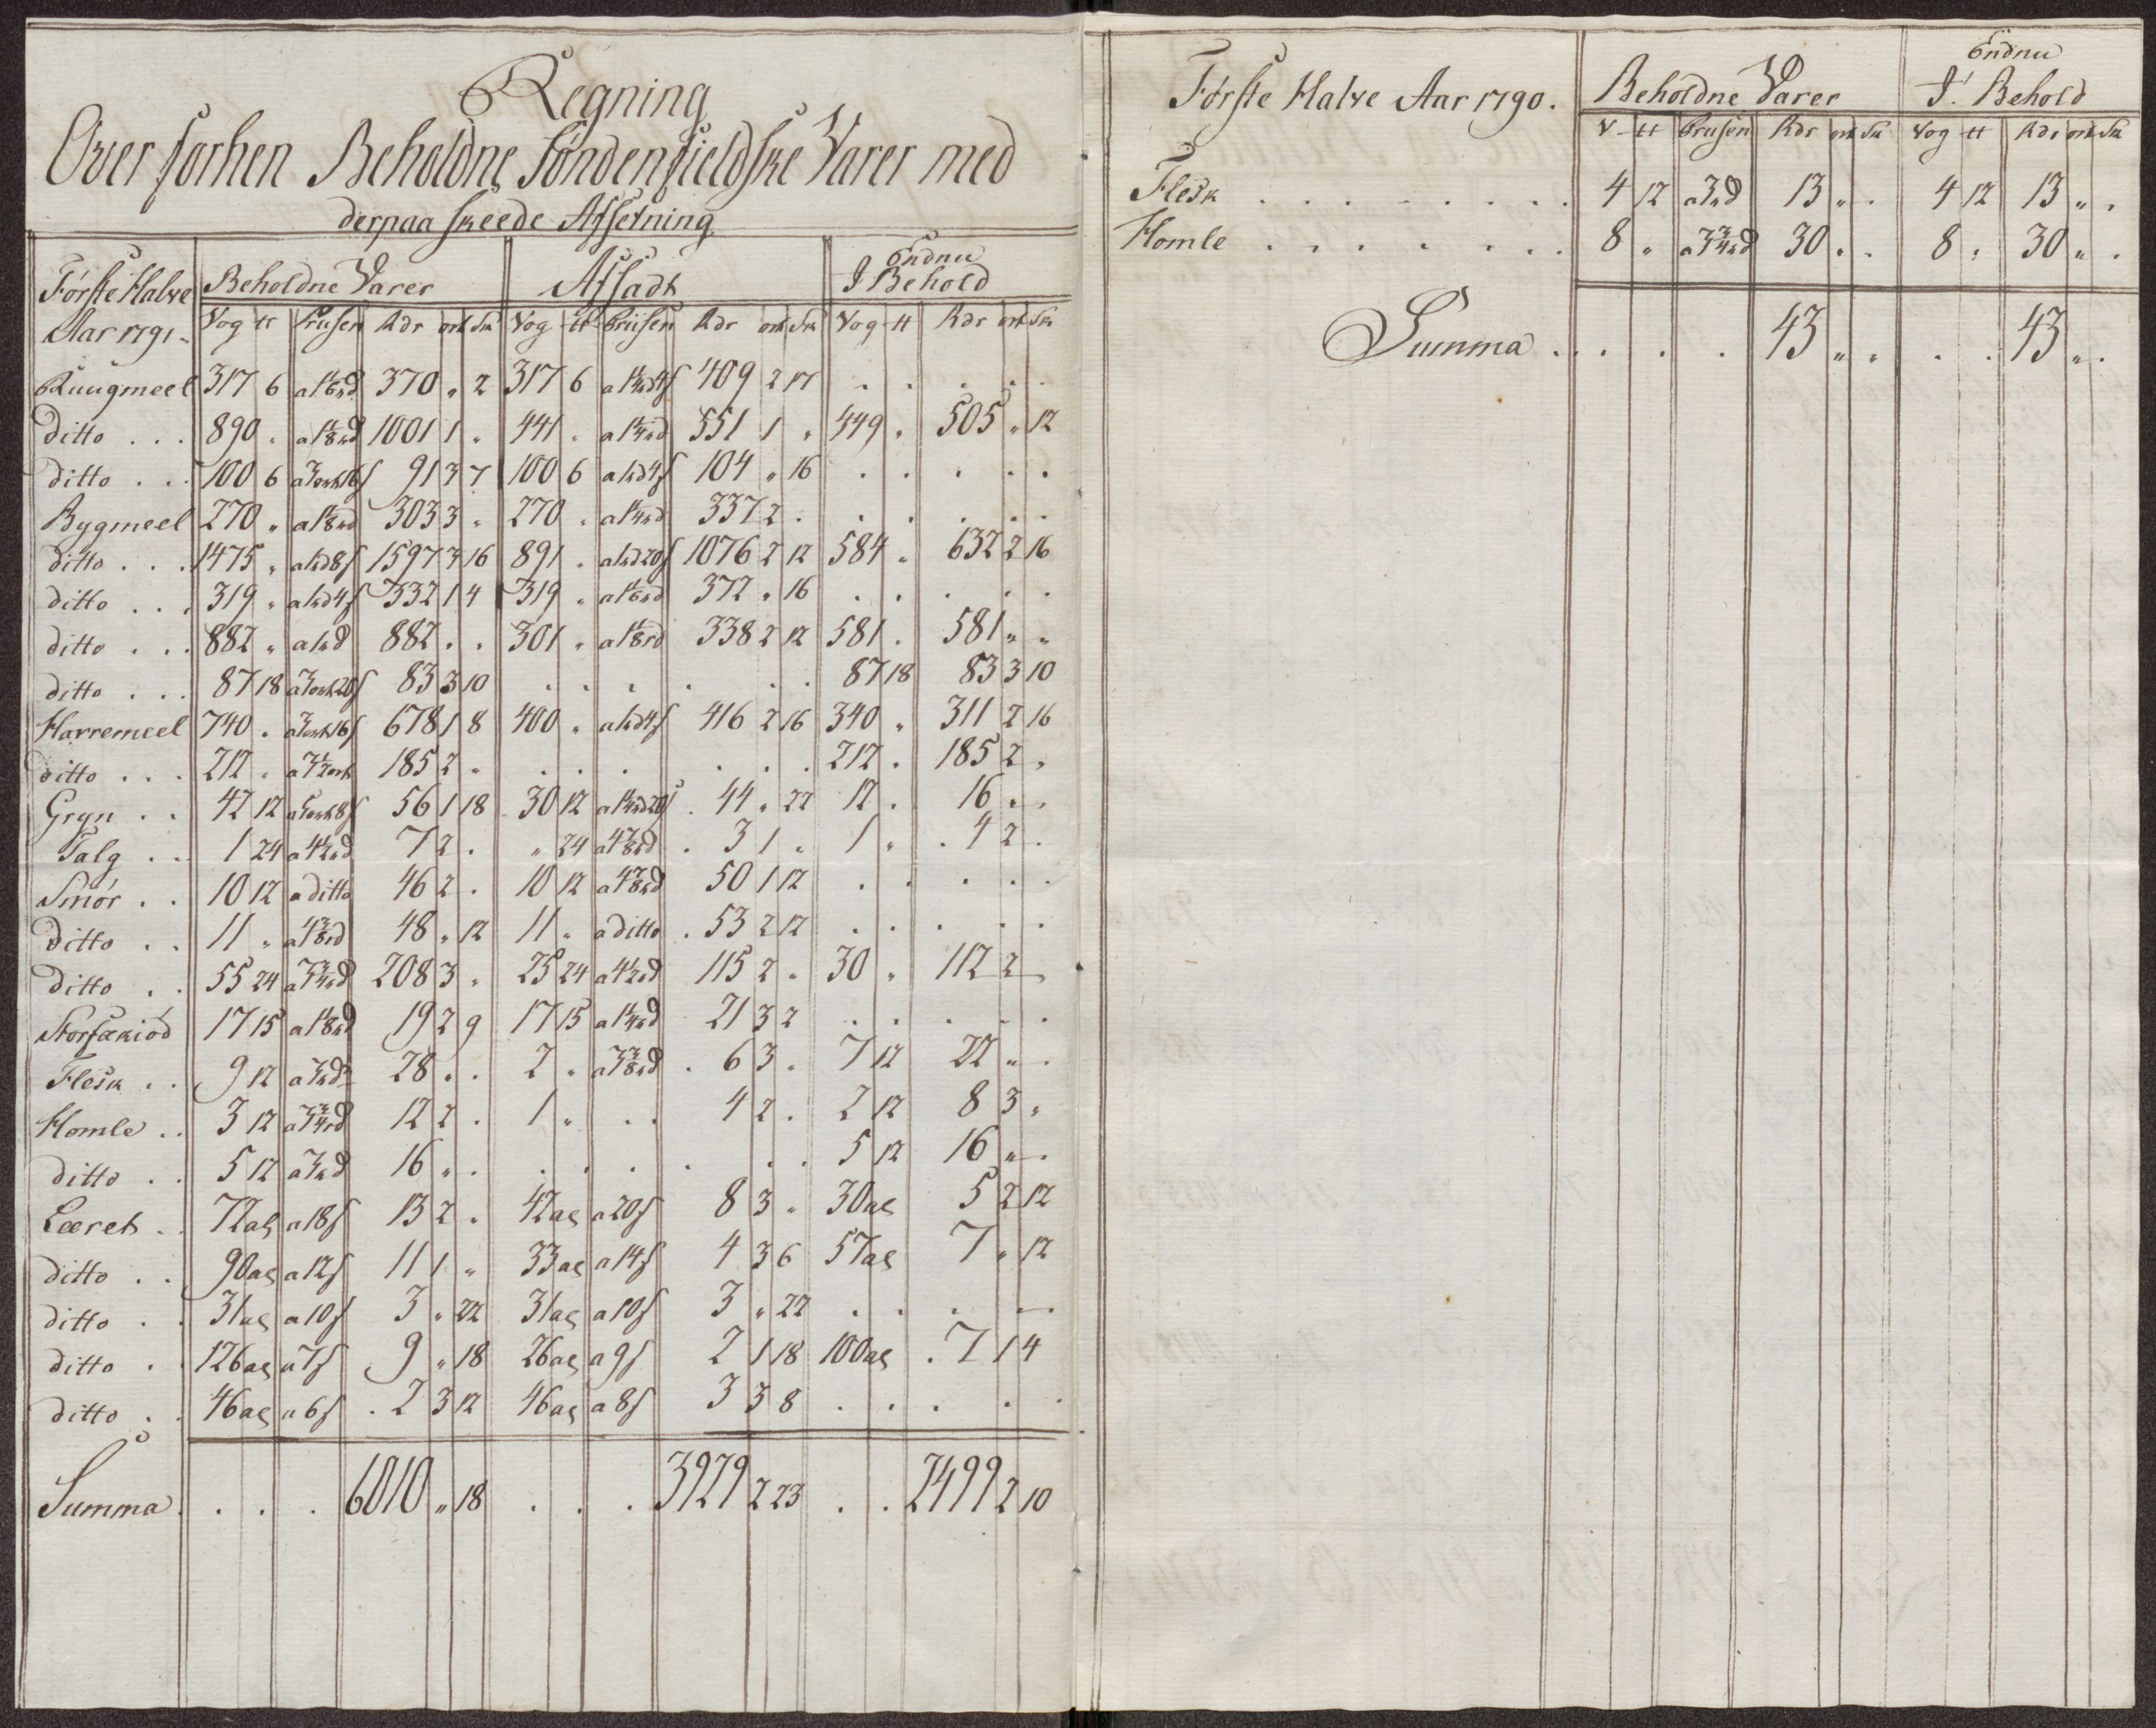 Regning
Over forhen Beholdne Søndenfieldske Varer med
derpaa skeede Afsetning
Første Halve Aar 1791 Beholdne Varer Afsadt Endnu I Behold
Vog tt Prisen Rdr ort Sk Vog tt Prisen Rdr ort Sk Vog tt Rdr ort Sk
Ruugmeel 317 6 a 1 1/6 rd 370 " 2 317 6 a 1 1/4 rd 4 s 409 2 17 . . . . .
ditto . . . 890 . a 1 1/8 rd 1001 1 " 441 . a 1 1/4 rd 551 1 " 449 " 505 " 12
ditto . . . 100 6 a 3 ort 16 s 91 3 7 100 6 a 1 rd 4 s 104 " 16 . . . . .
Bygmeel 270 " a 1 1/8 rd 303 3 " 270 . a 1 1/4 rd 337 2 . . . . . .
ditto . . . 1475 " a 1 rd 8 s 1597 3 16 891 . a 1 rd 20 s 1076 2 12 584 " 632 2 16
ditto . . . 319 " a 1 rd 4 s 332 1 4 319 " a 1 1/6 rd 372 " 16 . . . . .
ditto . . . 882 " a 1 rd 882 . . 301 " a 1 1/8 rd 338 2 12 581 . 581 " "
ditto . . . 87 18 a 3 ort 20 s 83 3 10 . . . . . . 87 18 83 3 10
Havremeel 740 . a 3 ort 16 s 678 1 8 400 " a 1 rd 4 s 416 2 16 340 " 311 2 16
ditto . . . 212 . a 3 1/2 ort 185 2 " . . . . . . 212 . 185 2 "
Gryn . . 42 12 a 5 ort 8 s 56 1 18 30 12 a 1 1/4 rd 20 s . 44 " 22 12 . 16 . .
Talg . . 1 24 a 4 1/2 rd 7 2 . " 24 a 4 7/8 rd . 3 1 " 1 " . 4 2 .
Smør . . 10 12 a ditto 46 2 . 10 12 a 4 7/8 rd 50 1 12 . . . . .
ditto . . 11 " a 4 3/8 rd 48 " 12 11 " a ditto . 53 2 12 . . . . .
ditto . . 55 24 a 3 3/4 rd 208 3 " 25 24 a 4 1/2 rd 115 2 " 30 " 112 2 "
Storfækiød 17 15 a 1 1/8 rd 19 2 9 17 15 a 1 1/4 rd 21 3 2 . . . . .
Flesk . . 9 12 a 3 rd 28 . . 2 " a 3 3/8 rd . 6 3 " 7 12 22 " .
Homle . . 3 12 a 3 3/4 rd 12 2 . 1 " . . 4 2 . 2 12 8 3 "
ditto . . 5 12 a 3 rd 16 " . . . . . . . 5 12 16 " .
Læret . . 72 al a 18 s 13 2 " 42 al a 20 s 8 3 " 30 al 5 2 12
ditto . . 90 al a 12 s 11 1 " 33 al a 14 s 4 3 6 57 al 7 " 12
ditto . . 31 al a 10 s 3 " 22 31 al a 10 s 3 " 22 . . . . .
ditto . . 126 al a 7 s 9 " 18 26 al a 9 s 2 1 18 100 al . 7 1 4
ditto . . 46 al a 6 s . 2 3 12 46 al a 8 s 3 3 8 . . . . .
Summa . . . . 6010 " 18 . . . 3929 2 23 . . 2499 2 10
Første Halve Aar 1790. Beholdne Varer Endnu I Behold
V tt Prisen Rdr ort Sk Vog tt Rdr ort Sk
Flesk . . . . . . . . 4 12 a 3 rd 13 " . 4 12 13 " .
Homle . . . . . . . 8 " a 3 3/4 rd 30 " . 8 " 30 " .
Summa . . . . 43 " " . . 43 " .